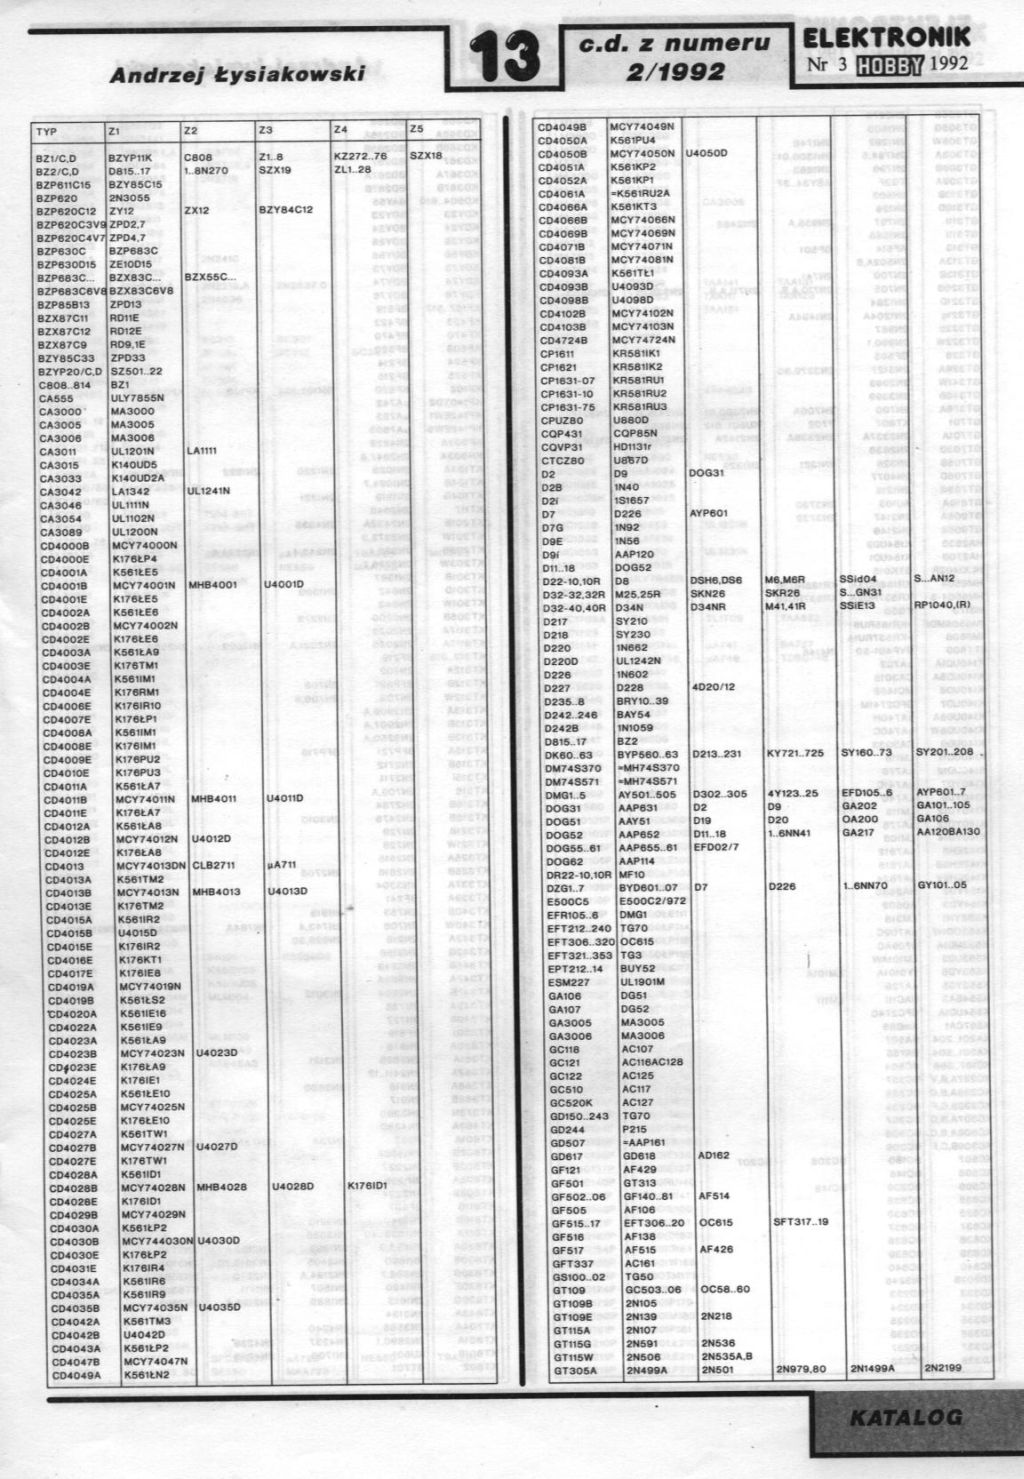 Andrzej Łysiakowski
13
c.d. z numeru
2/1992
ELEKTRONIK
Nr 3 HOBBY 1992
TYP Z1 Z2 Z3 Z4 Z5
BZ1/C,D BZYP11K C808 Z1..8 KZ272..76 SZX18
BZ2/C,D D815..17 1..8N270 SZX19 ZL1..28
BZP611C15 BZY85C15
BZP620 2N3055
BZP620C12 ZY12 ZX12 BZY84C12
BZP620C3V9 ZPD2,7
BZP620C4V7 ZPD4,7
BZP630C BZP683C
BZP630D15 ZE10D15
BZP683C... BZX83C... BZX55C...
BZP683C6V8 BZX83C6V8
BZP85B13 ZPD13
BZX87C11 RD11E
BZX87C12 RD12E
BZX87C9 RD9,1E
BZY85C33 ZPD33
BZYP20/C,D SZ501..22
C808..814 BZ1
CA555 ULY7855N
CA3000 MA3000
CA3005 MA3005
CA3006 MA3006
CA3011 UL1201N LA1111
CA3015 K140UD5
CA3033 K140UD2A
CA3042 LA1342 UL1241N
CA3046 UL1111N
CA3054 UL1102N
CA3089 UL1200N
CD4000B MCY74000N
CD4000E K176ŁP4
CD4001A K561ŁE5
CD4001B MCY74001N MHB4001 U4001D
CD4001E K176ŁE5
CD4002A K561ŁE6
CD4002B MCY74002N
CD4002E K176ŁE6
CD4003A K561ŁA9
CD4003E K176TM1
CD4004A K561IM1
CD4004E K176RM1
CD4006E K176IR10
CD4007E K176ŁP1
CD4008A K561IM1
CD4008E K176IM1
CD4009E K176PU2
CD4010E K176PU3
CD4011A K561ŁA7
CD4011B MCY74011N MHB4011 U4011D
CD4011E K176ŁA7
CD4012A K561ŁA8
CD4012B MCY74012N U4012D
CD4012E K176ŁA8
CD4013 MCY74013DN CLB2711 µA711
CD4013A K561TM2
CD4013B MCY74013N MHB4013 U4013D
CD4013E K176TM2
CD4015A K561IR2
CD4015B U4015D
CD4015E K176IR2
CD4016E K176KT1
CD4017E K176IE8
CD4019A MCY74019N
CD4019B K561ŁS2
CD4020A K561IE16
CD4022A K561IE9
CD4023A K561ŁA9
CD4023B MCY74023N U4023D
CD4023E K176ŁA9
CD4024E K176IE1
CD4025A K561ŁE10
CD4025B MCY74025N
CD4025E K176ŁE10
CD4027A K561TW1
CD4027B MCY74027N U4027D
CD4027E K176TW1
CD4028A K561ID1
CD4028B MCY74028N MHB4028 U4028D K176ID1
CD4028E K176ID1
CD4029B MCY74029N
CD4030A K561ŁP2
CD4030B MCY744030N U4030D
CD4030E K176ŁP2
CD4031E K176IR4
CD4034A K561IR6
CD4035A K561IR9
CD4035B MCY74035N U4035D
CD4042A K561TM3
CD4042B U4042D
CD4043A K561ŁP2
CD4047B MCY74047N
CD4049A K561ŁN2
CD4049B MCY74049N
CD4050A K561PU4
CD4050B MCY74050N U4050D
CD4051A K561KP2
CD4052A K561KP1
CD4061A =K561RU2A
CD4066A K561KT3
CD4066B MCY74066N
CD4069B MCY74069N
CD4071B MCY74071N
CD4081B MCY74081N
CD4093A K561TŁ1
CD4093B U4093D
CD4098B U4098D
CD4102B MCY74102N
CD4103B MCY74103N
CD4724B MCY74724N
CP1611 KR581IK1
CP1621 KR581IK2
CP1631-07 KR581RU1
CP1631-10 KR581RU2
CP1631-75 KR581RU3
CPUZ80 U880D
CQP431 CQP85N
CQVP31 HD1131r
CTCZ80 U857D
D2 D9 DOG31
D2B 1N40
D2i 1S1657
D7 D226 AYP601
D7G 1N92
D9E 1N56
D9i AAP120
D11..18 DOG52
D22-10,10R D8 DSH6,DS6 M6,M6R SSid04 S...AN12
D32-32,32R M25,25R SKN26 SKR26 S...GN31
D32-40,40R D34N D34NR M41,41R SSiE13 RP1040,(R)
D217 SY210
D218 SY230
D220 1N662
D220D UL1242N
D226 1N602
D227 D228 4D20/12
D235..8 BRY10..39
D242..246 BAY54
D242B 1N1059
D815..17 BZ2
DK60..63 BYP560..63 D213..231 KY721..725 SY160..73 SY201..208
DM74S370 =MH74S370
DM74S571 =MH74S571
DMG1..5 AY501..505 D302..305 4Y123..25 EFD105..6 AYP601..7
DOG31 AAP631 D2 D9 GA202 GA101..105
DOG51 AAY51 D19 D20 OA200 GA106
DOG52 AAP652 D11..18 1..6NN41 GA217 AA120BA130
DOG55..61 AAP655..61 EFD02/7
DOG62 AAP114
DR22-10,10R MF10
DZG1..7 BYD601..07 D7 D226 1..6NN70 GY101..05
E500C5 E500C2/972
EFR105..6 DMG1
EFT212..240 TG70
EFT306..320 OC615
EFT321..353 TG3
EPT212..14 BUY52
ESM227 UL1901M
GA106 DG51
GA107 DG52
GA3005 MA3005
GA3006 MA3006
GC118 AC107
GC121 AC116AC128
GC122 AC125
GC510 AC117
GC520K AC127
GD150..243 TG70
GD244 P215
GD507 =AAP161
GD617 GD618 AD162
GF121 AF429
GF501 GT313
GF502..06 GF140..81 AF514
GF505 AF106
GF515..17 EFT306..20 OC615 SFT317..19
GF516 AF138
GF517 AF515 AF426
GFT337 AC161
GS100..02 TG50
GT109 GC503..06 OC58..60
GT109B 2N105
GT109E 2N139 2N218
GT115A 2N107
GT115G 2N591 2N536
GT115W 2N506 2N535A,B
GT305A 2N499A 2N501 2N979,80 2N1499A 2N2199
KATALOG